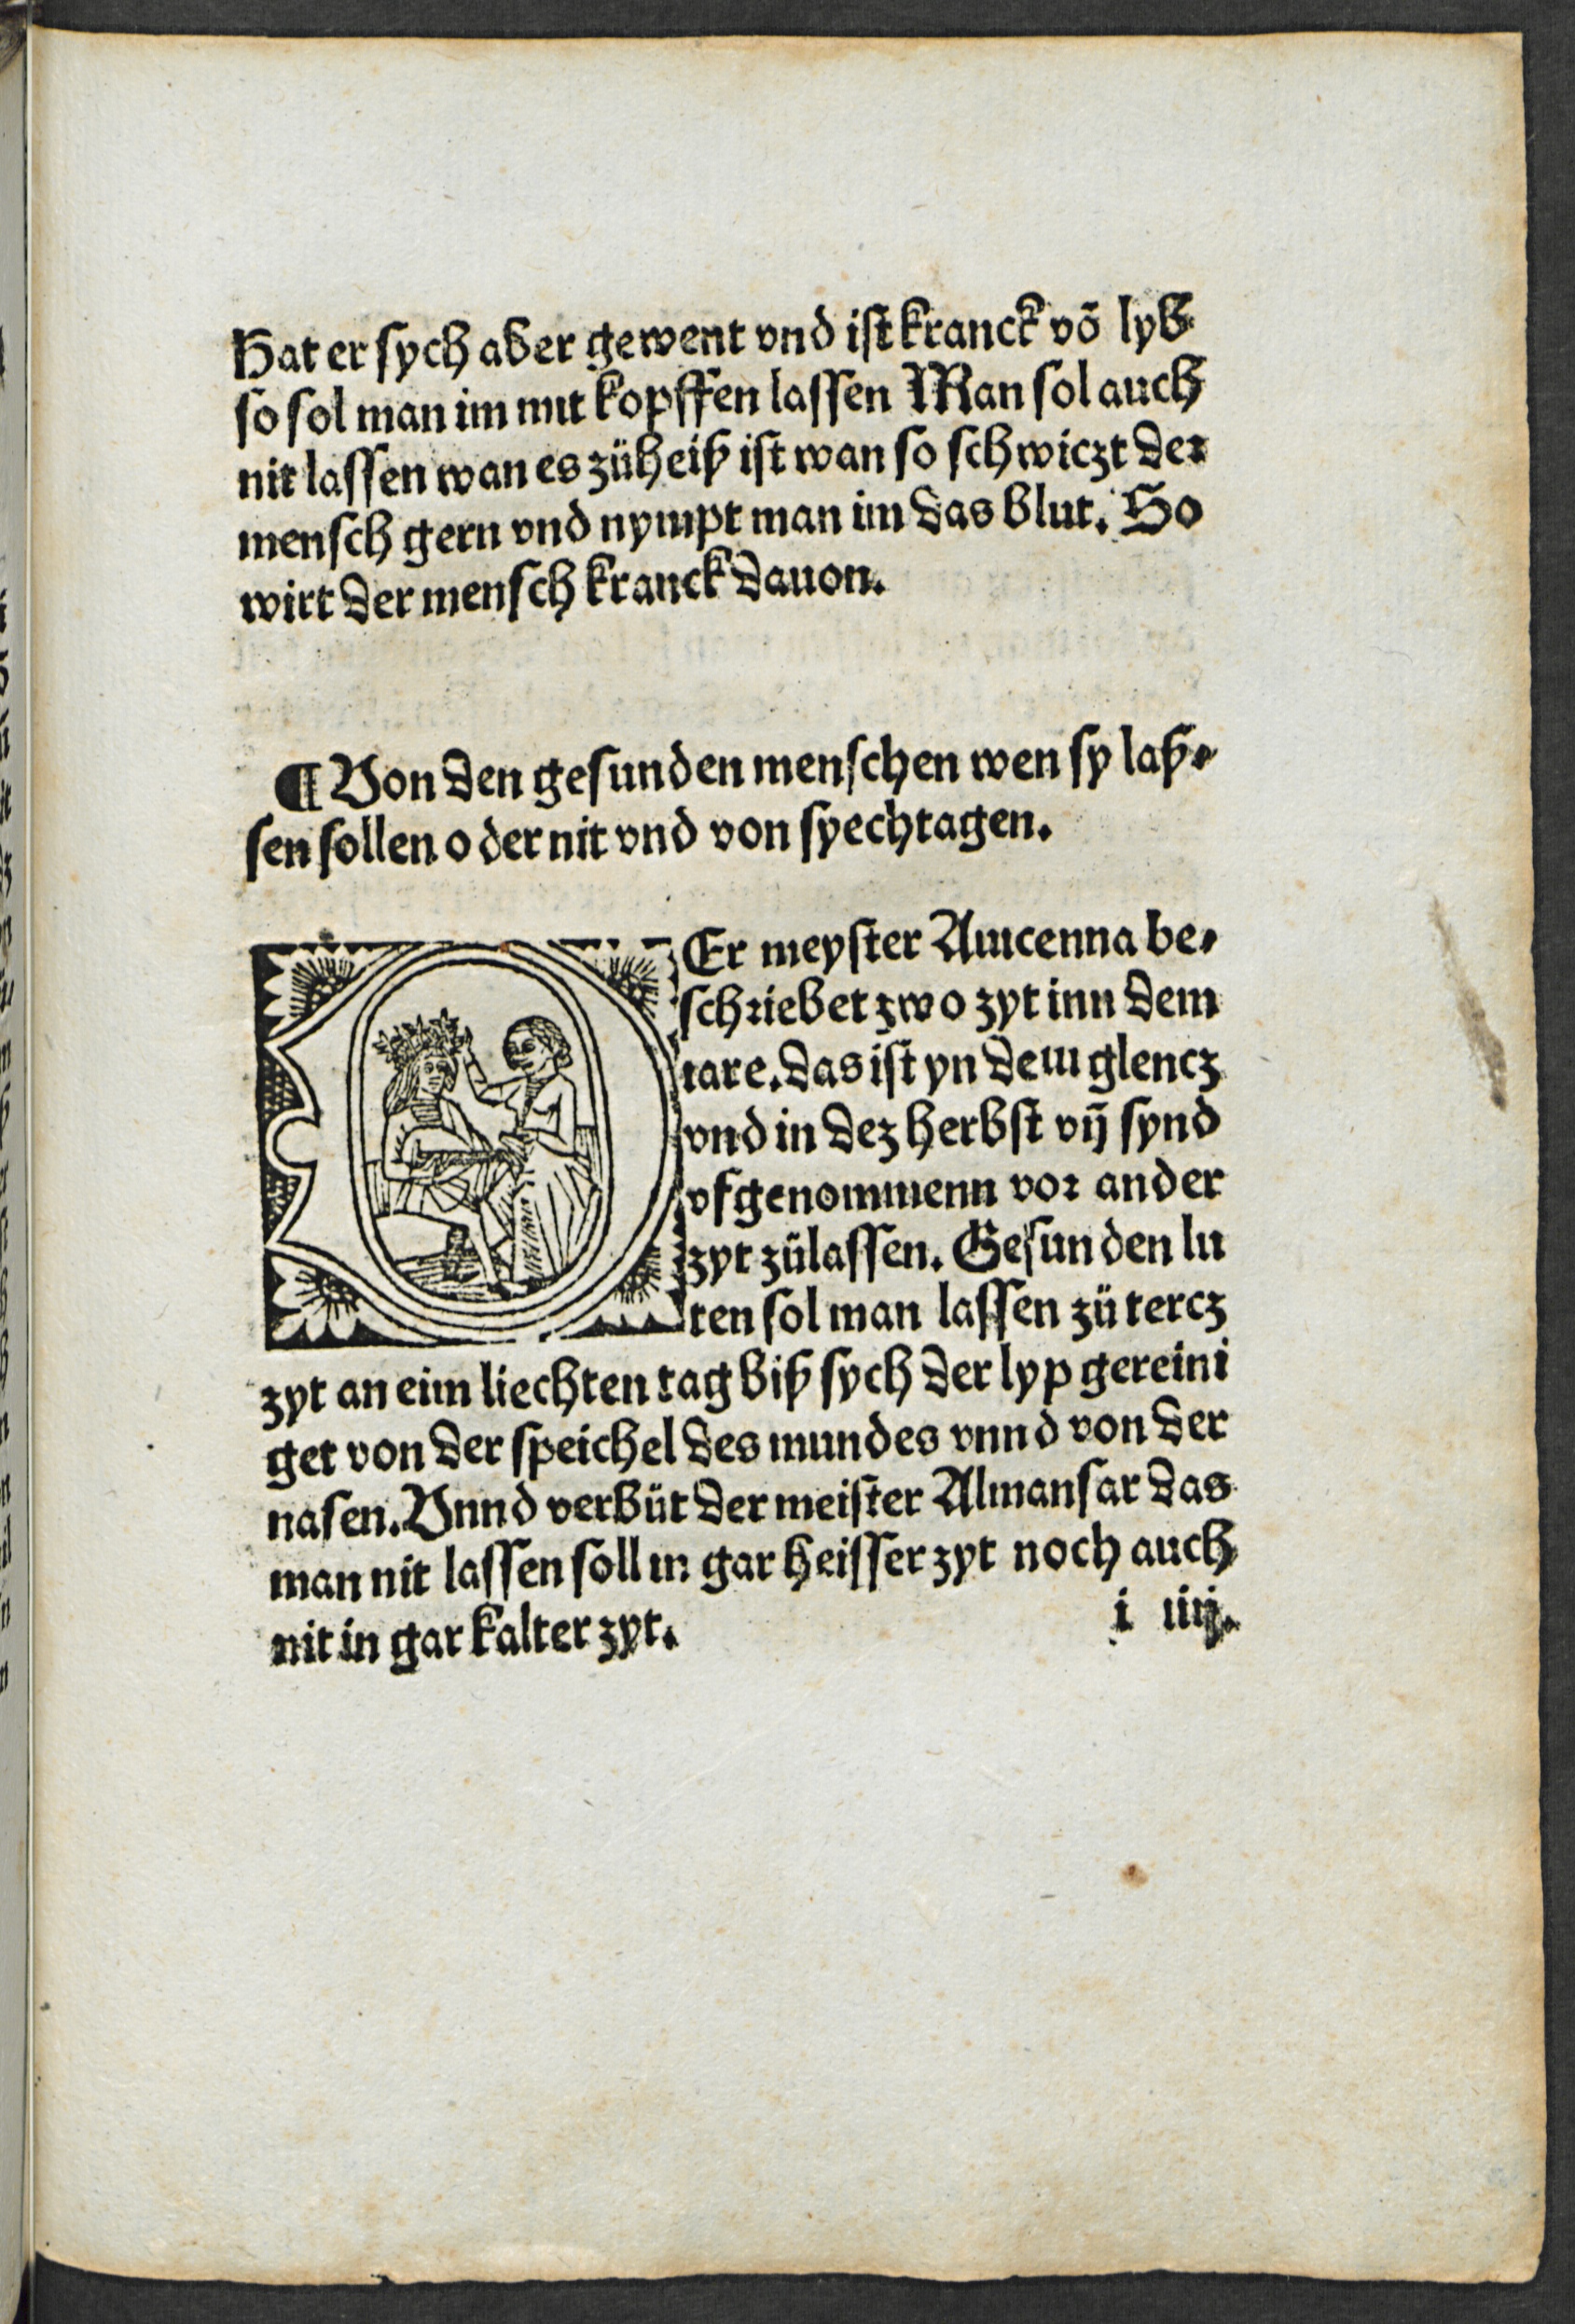 Hat er sych aber gewent vnd ist kranck vō lyb
so sol man im mit kopffen lassen Man sol auch
nit lassen wan es züheiß ist wan so schwiczt der
mensch gern vnd nympt man im das blut. So
wirt der mensch kranck dauon.
¶ Von den gesunden menschen wen sy laß⸗
sen sollen oder nit vnd von spechtagen.
DEr meyster Auicenna be⸗
schriebet zwo zyt inn dem
iare. das ist yn dem glencz
vnd in dez herbst vij synd
vfgenommenn vor ander
zyt zülassen. Gesunden lu
ten sol man lassen zü tercz
zyt an eim liechten tag biß sych der lyp gereini
get von der speichel des mundes vnnd von der
nasen. Vnnd verbüt der meister Almansar das
man nit lassen soll in gar heisser zyt noch auch
nit in gar kalter zyt.
i iiij.